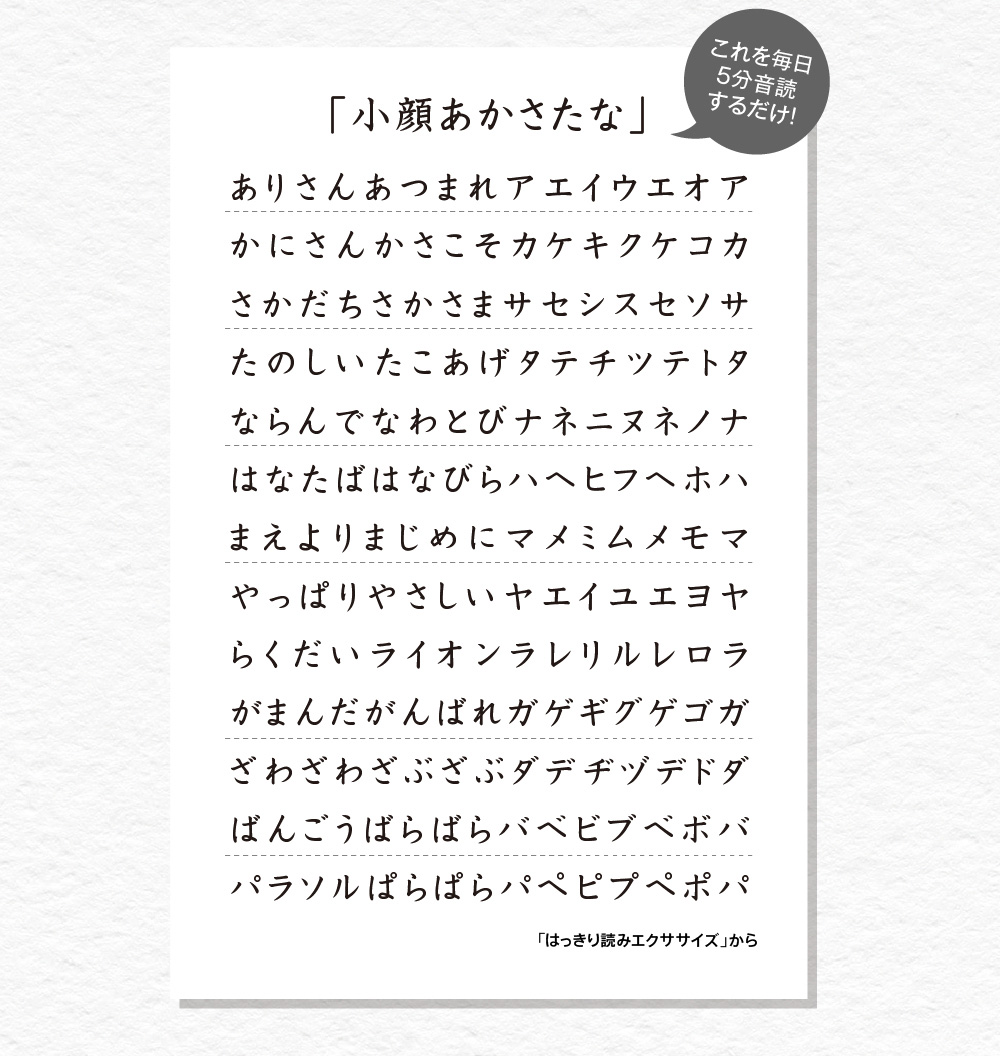 これを毎日
5分音読
するだけ!
「小顔あかさたな」
ありさんあつまれアエイウエオア
かにさんかさこそカケキクケコカ
さかだちさかさまサセシスセソサ
たのしいたこあげタテチツテトタ
ならんでなわとびナネニヌネノナ
はなたばはなびらハヘヒフヘホハ
まえよりまじめにマメミムメモマ
やっぱりやさしいヤエイユエヨヤ
らくだいライオンラレリルレロラ
がまんだがんばれガゲギグゲゴガ
ざわざわざぶざぶダデヂヅデドダ
ばんごうばらばらバベビブベボバ
パラソルぱらぱらパペピプペポパ
「はっきり読みエクササイズ」から